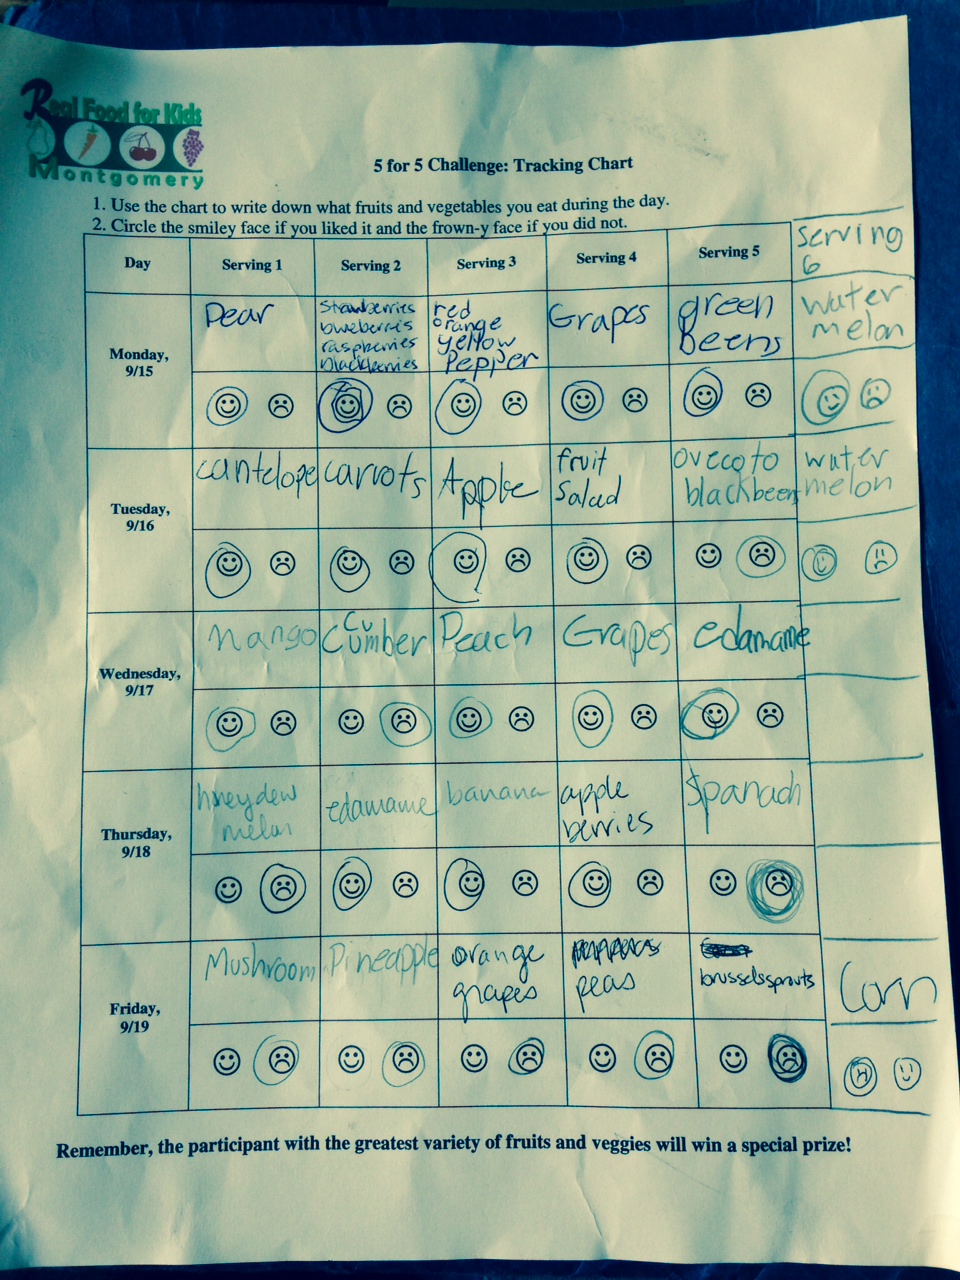 Real Food for Kids
Montgomery
5 for 5 Challenge: Tracking Chart
1. Use the chart to write down what fruits and vegetables you eat during the day.
2. Circle the smiley face if you liked it and the frown-y face if you did not.
Day
Serving 1
Serving 2
Serving 3
Serving 4
Serving 5
Serving
6
Monday,
9/15
Pear
Strawberries
blueberris
raspberries
blackberries
red
orange
yellow
Pepper
Grapes
green
beens
water
melon
Tuesday,
9/16
cantelope
carrots
Apple
fruit
Salad
ovecoto
blackbeen
water
melon
Wednesday,
9/17
Mango
Cucumber
Peach
Grapes
edamame
Thursday,
9/18
honeydew
melon
edamame
banana
apple
berries
Spanach
Friday,
9/19
Mushroom
Pineapple
orange
grapes
peas
brusselssprouts
Corn
Remember, the participant with the greatest variety of fruits and veggies will win a special prize!